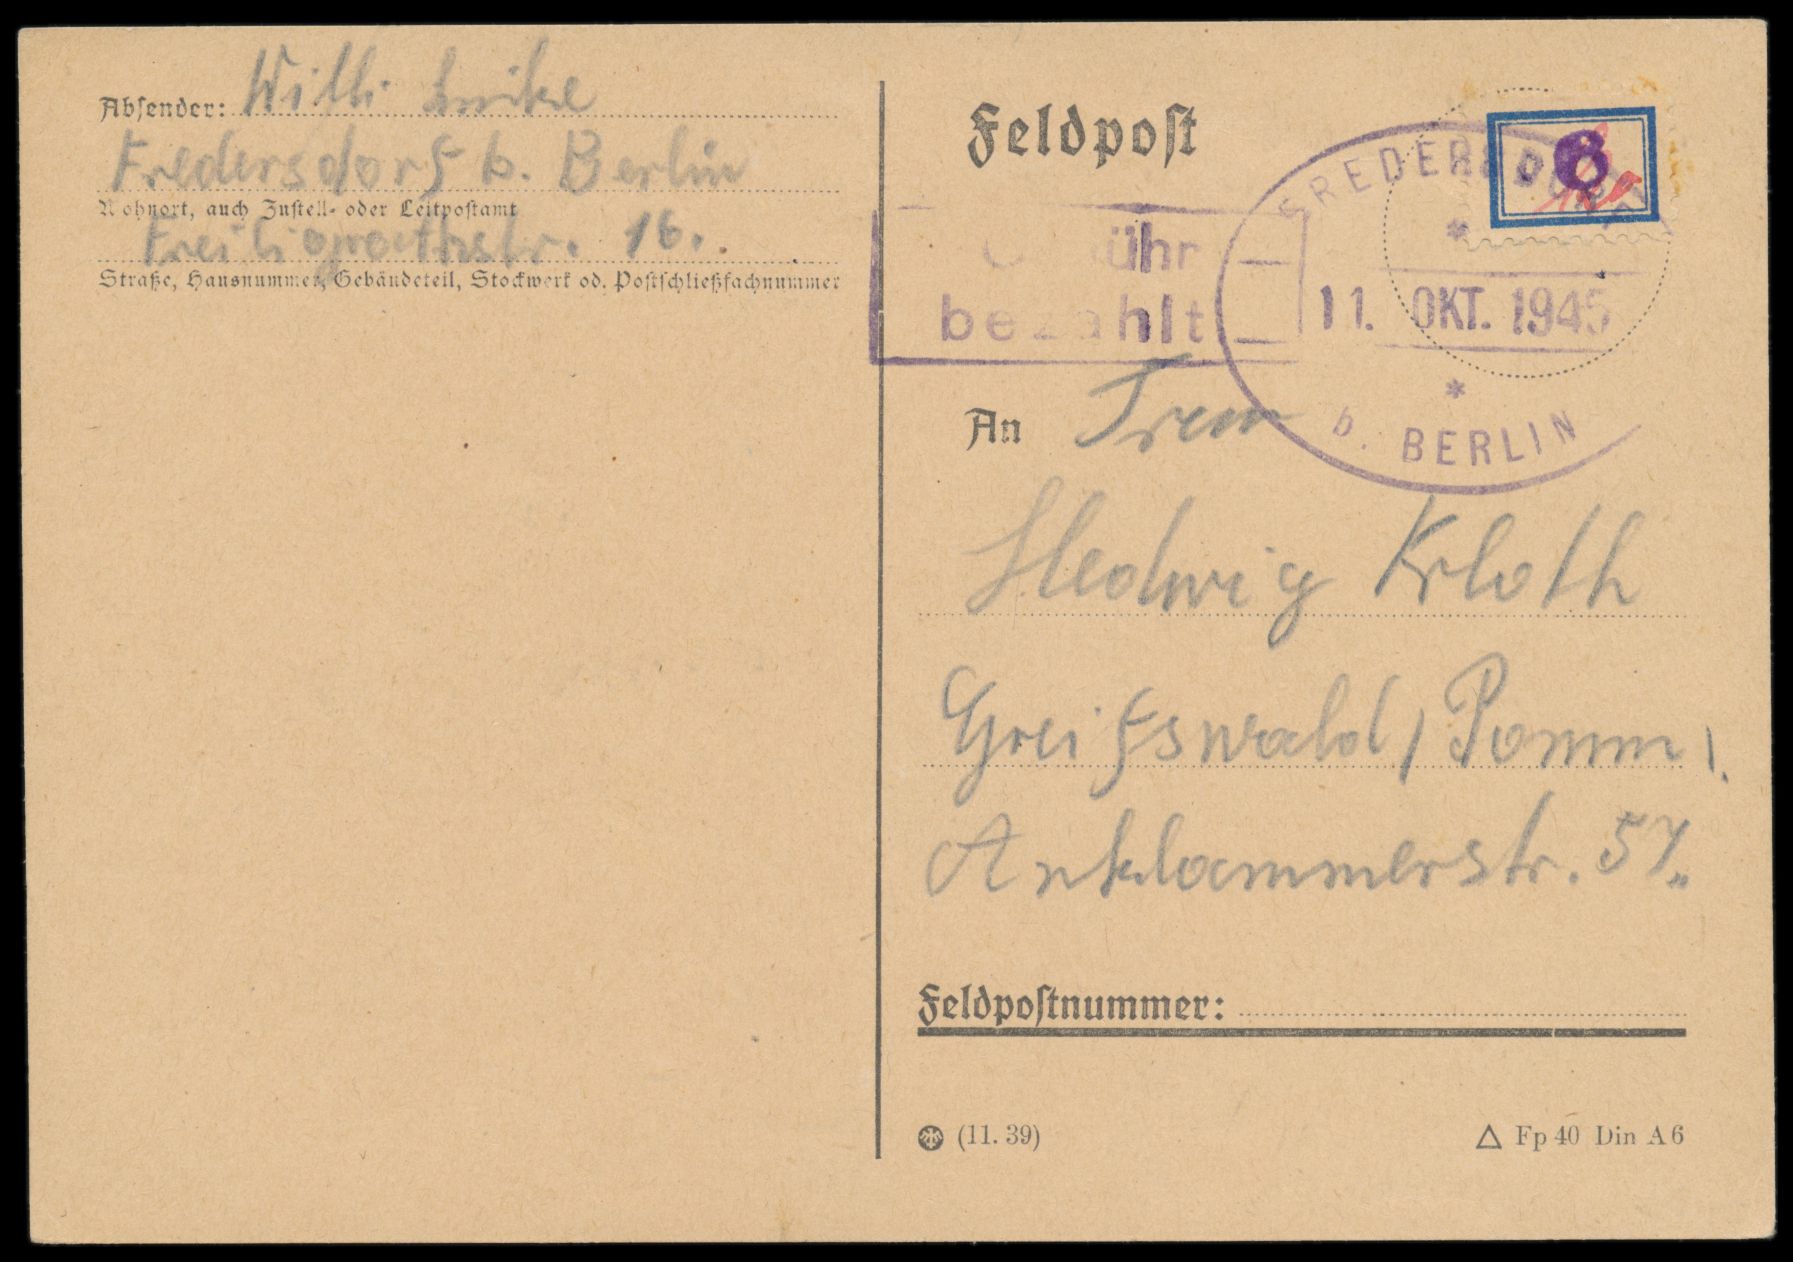 Absender: Willi
Fredersdorf b. Berlin
Wohnort, auch Zustell- oder Leitpostamt
Freiligrathstr. 16.
Straße, Hausnummer, Gebäudeteil, Stockwerk od. Postschließfachnummer
Feldpost
6
FREDERSDORF
bezahlt
11. OKT. 1945
b. BERLIN
An Frau
Hedwig Krloth
Greifswald / Pomm.
Anklammerstr. 57.
Feldpostnummer:
(11. 39)
Fp 40 Din A 6